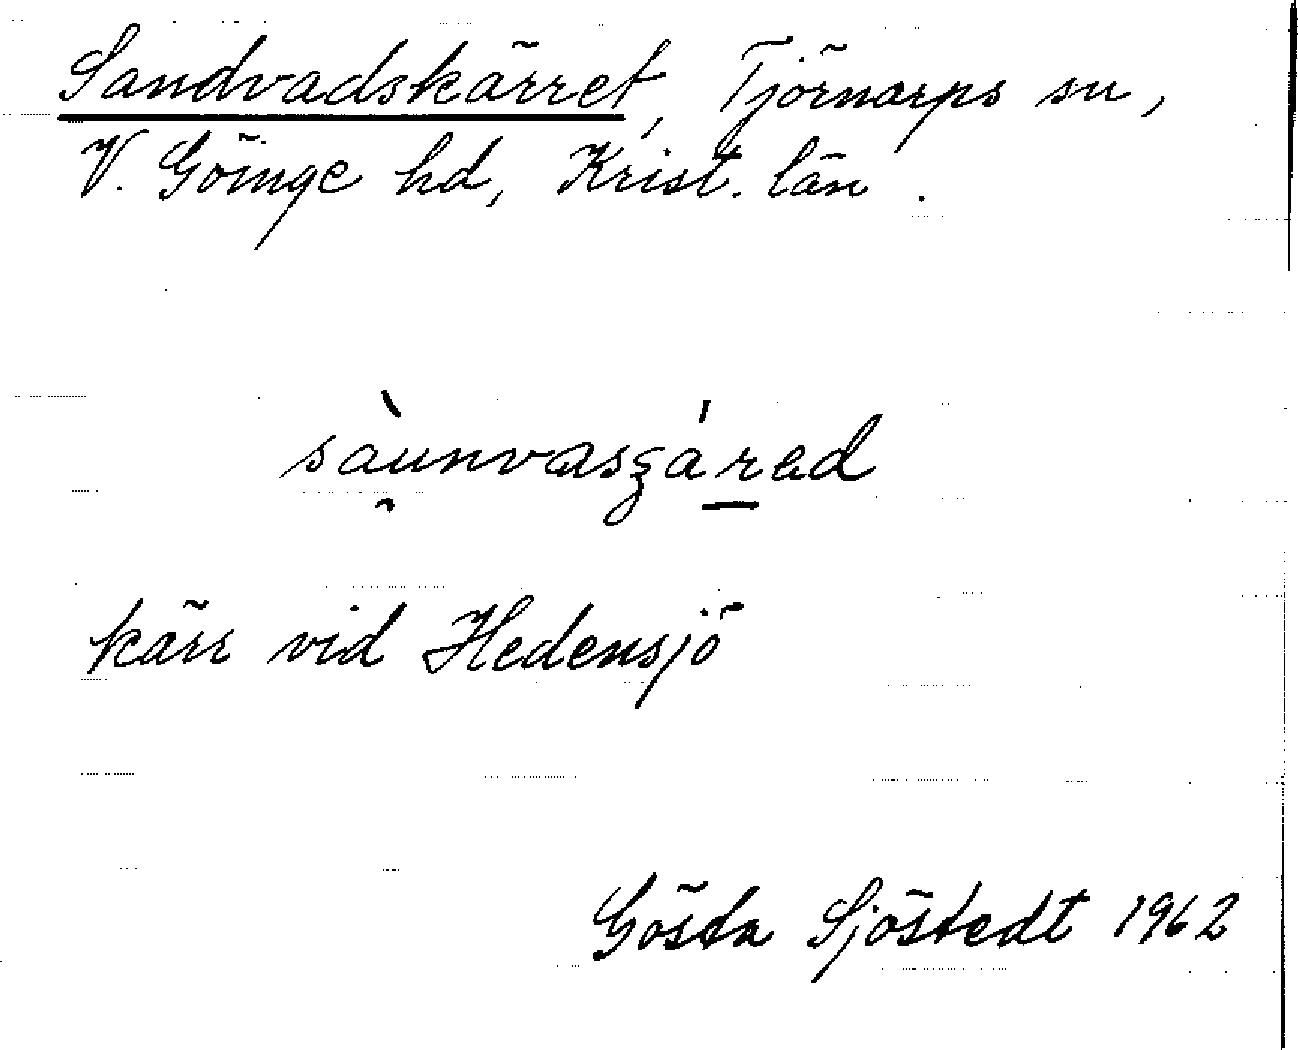 Sandvadskärret, Tjörnarps sn,
V. Göinge hd, Krist. län.
sàu̯nvasʒárad
kärr vid Hedensjö
Gösta Sjöstedt 1962